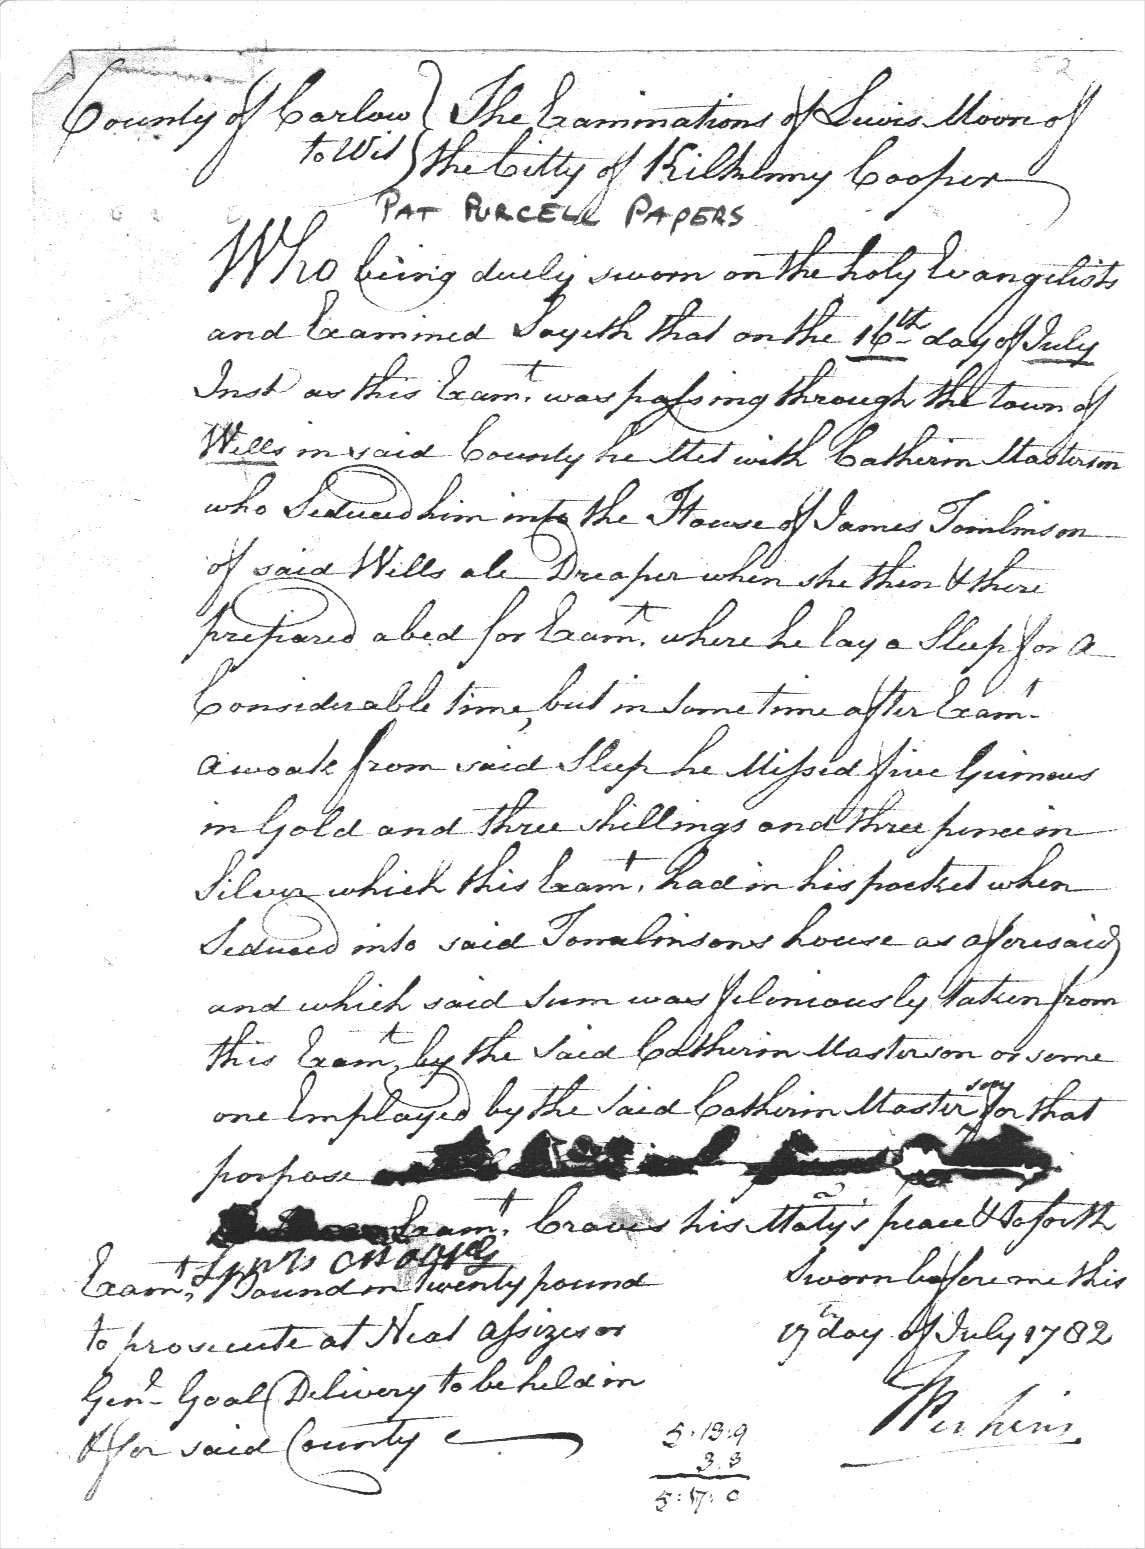 County of Carlow } The Examinations of Lewis Moore of
to Wit } the Citty of Kilkenny Cooper
PAT PURCELL PAPERS
Who being duely sworn on the holy Evangelists
and Examined Sayeth that on the 16th day of July
Inst as this Examt. was passing through the town of
Wells in said County he Met with Catherin Masterson
who Seduced him into the House of James Tomlinson
of said Wells ale Dreaper when she then & there
prepared a bed for Examt. where he lay a Sleep for a
Considerable time, but in some time after Examt
awoak from said Sleep he Missed five Guineas
in Gold and three shillings and three pence in
Silver which this Examt. had in his pocket when
Seduced into said Tomalinsons house as aforesaid
and which said sum was feloniously taken from
this Examt. by the said Catherin Masterson or some
one Employed by the said Catherin Masterson for that
porpose
Examt. Craves his Matys peace & so forth
Lewis Moore
Examt. Bound in Twenty pound
to prosecute at Next assizes or
Genl Goal Delivery to be held in
& for said County
Sworn before me this
17th day of July 1782
Perkins
5:13:9
3.3
5:17:0
2